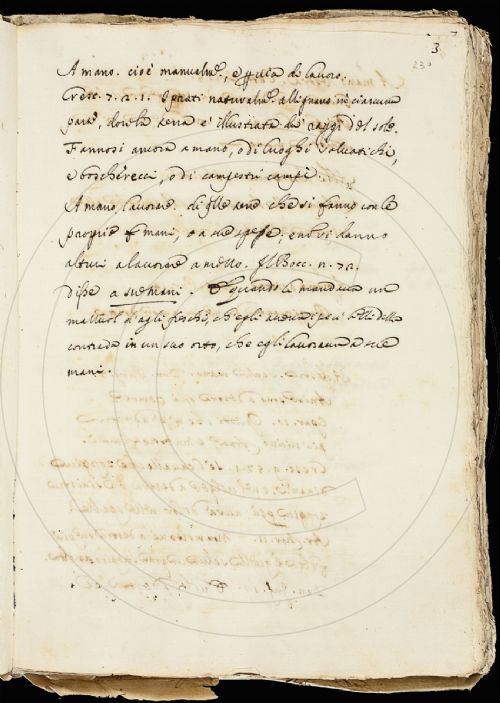 3
23
A mano. cioè manualmte, e p uia di lauoro.
Cresc. 7. 2. 1. I prati naturalmte allignano in ciascuna
parte, doue la terra è illustrata da' raggi del sole.
Fannosi ancora a mano, o di luoghi saluatichi,
e boscherecci, o di campestri campi.
A mano, lauorare. di qlle terre che si fanno con le
proprie mani, o a sue spese, e nõ si danno
altrui a lauorare a mezzo. Il Bocc. n. 72.
disse a sue mani. quando le mandaua un
mazzuol d'agli freschi, ch'egli aueua i piu belli della
contrada in un suo orto, che egli lauoraua a sue
mani.